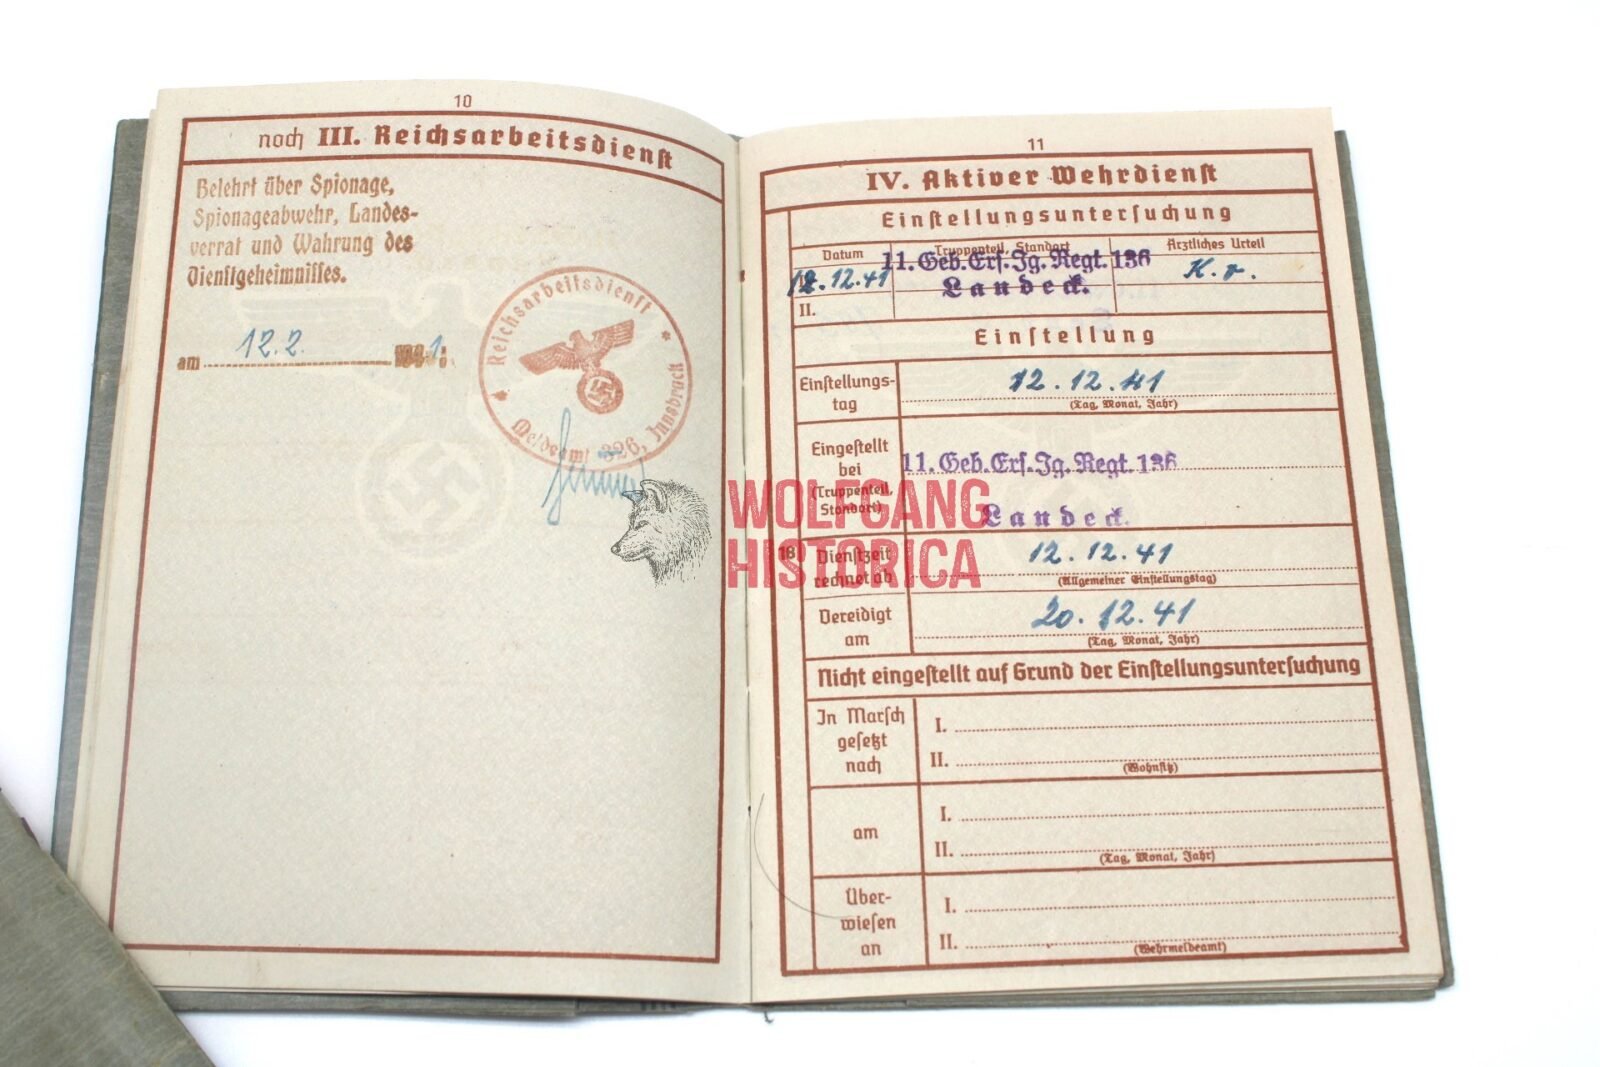 10
noch III. Reichsarbeitsdienst
Belehrt über Spionage,
Spionageabwehr, Landes-
verrat und Wahrung des
Dienstgeheimnisses.
am 12.2. 1941
Reichsarbeitsdienst
Meldeamt 326, Innsbruck
WOLFGANG
HISTORICA
11
IV. Aktiver Wehrdienst
Einstellungsuntersuchung
Datum Truppenteil, Standort Ärztliches Urteil
12.12.41 11. Geb. Ers. Jg. Regt. 136 K.v.
Landeck.
II.
Einstellung
Einstellungs-
tag
12.12.41
(Tag, Monat, Jahr)
Eingestellt
bei
(Truppenteil,
Standort)
11. Geb. Ers. Jg. Regt. 136
Landeck.
18
Dienstzeit
rechnet ab
12.12.41
(Allgemeiner Einstellungstag)
Vereidigt
am
20.12.41
(Tag, Monat, Jahr)
Nicht eingestellt auf Grund der Einstellungsuntersuchung
In Marsch
gesetzt
nach
I.
II.
(Wohnsitz)
am
I.
II.
(Tag, Monat, Jahr)
Über-
wiesen
an
I.
II.
(Wehrmeldeamt)